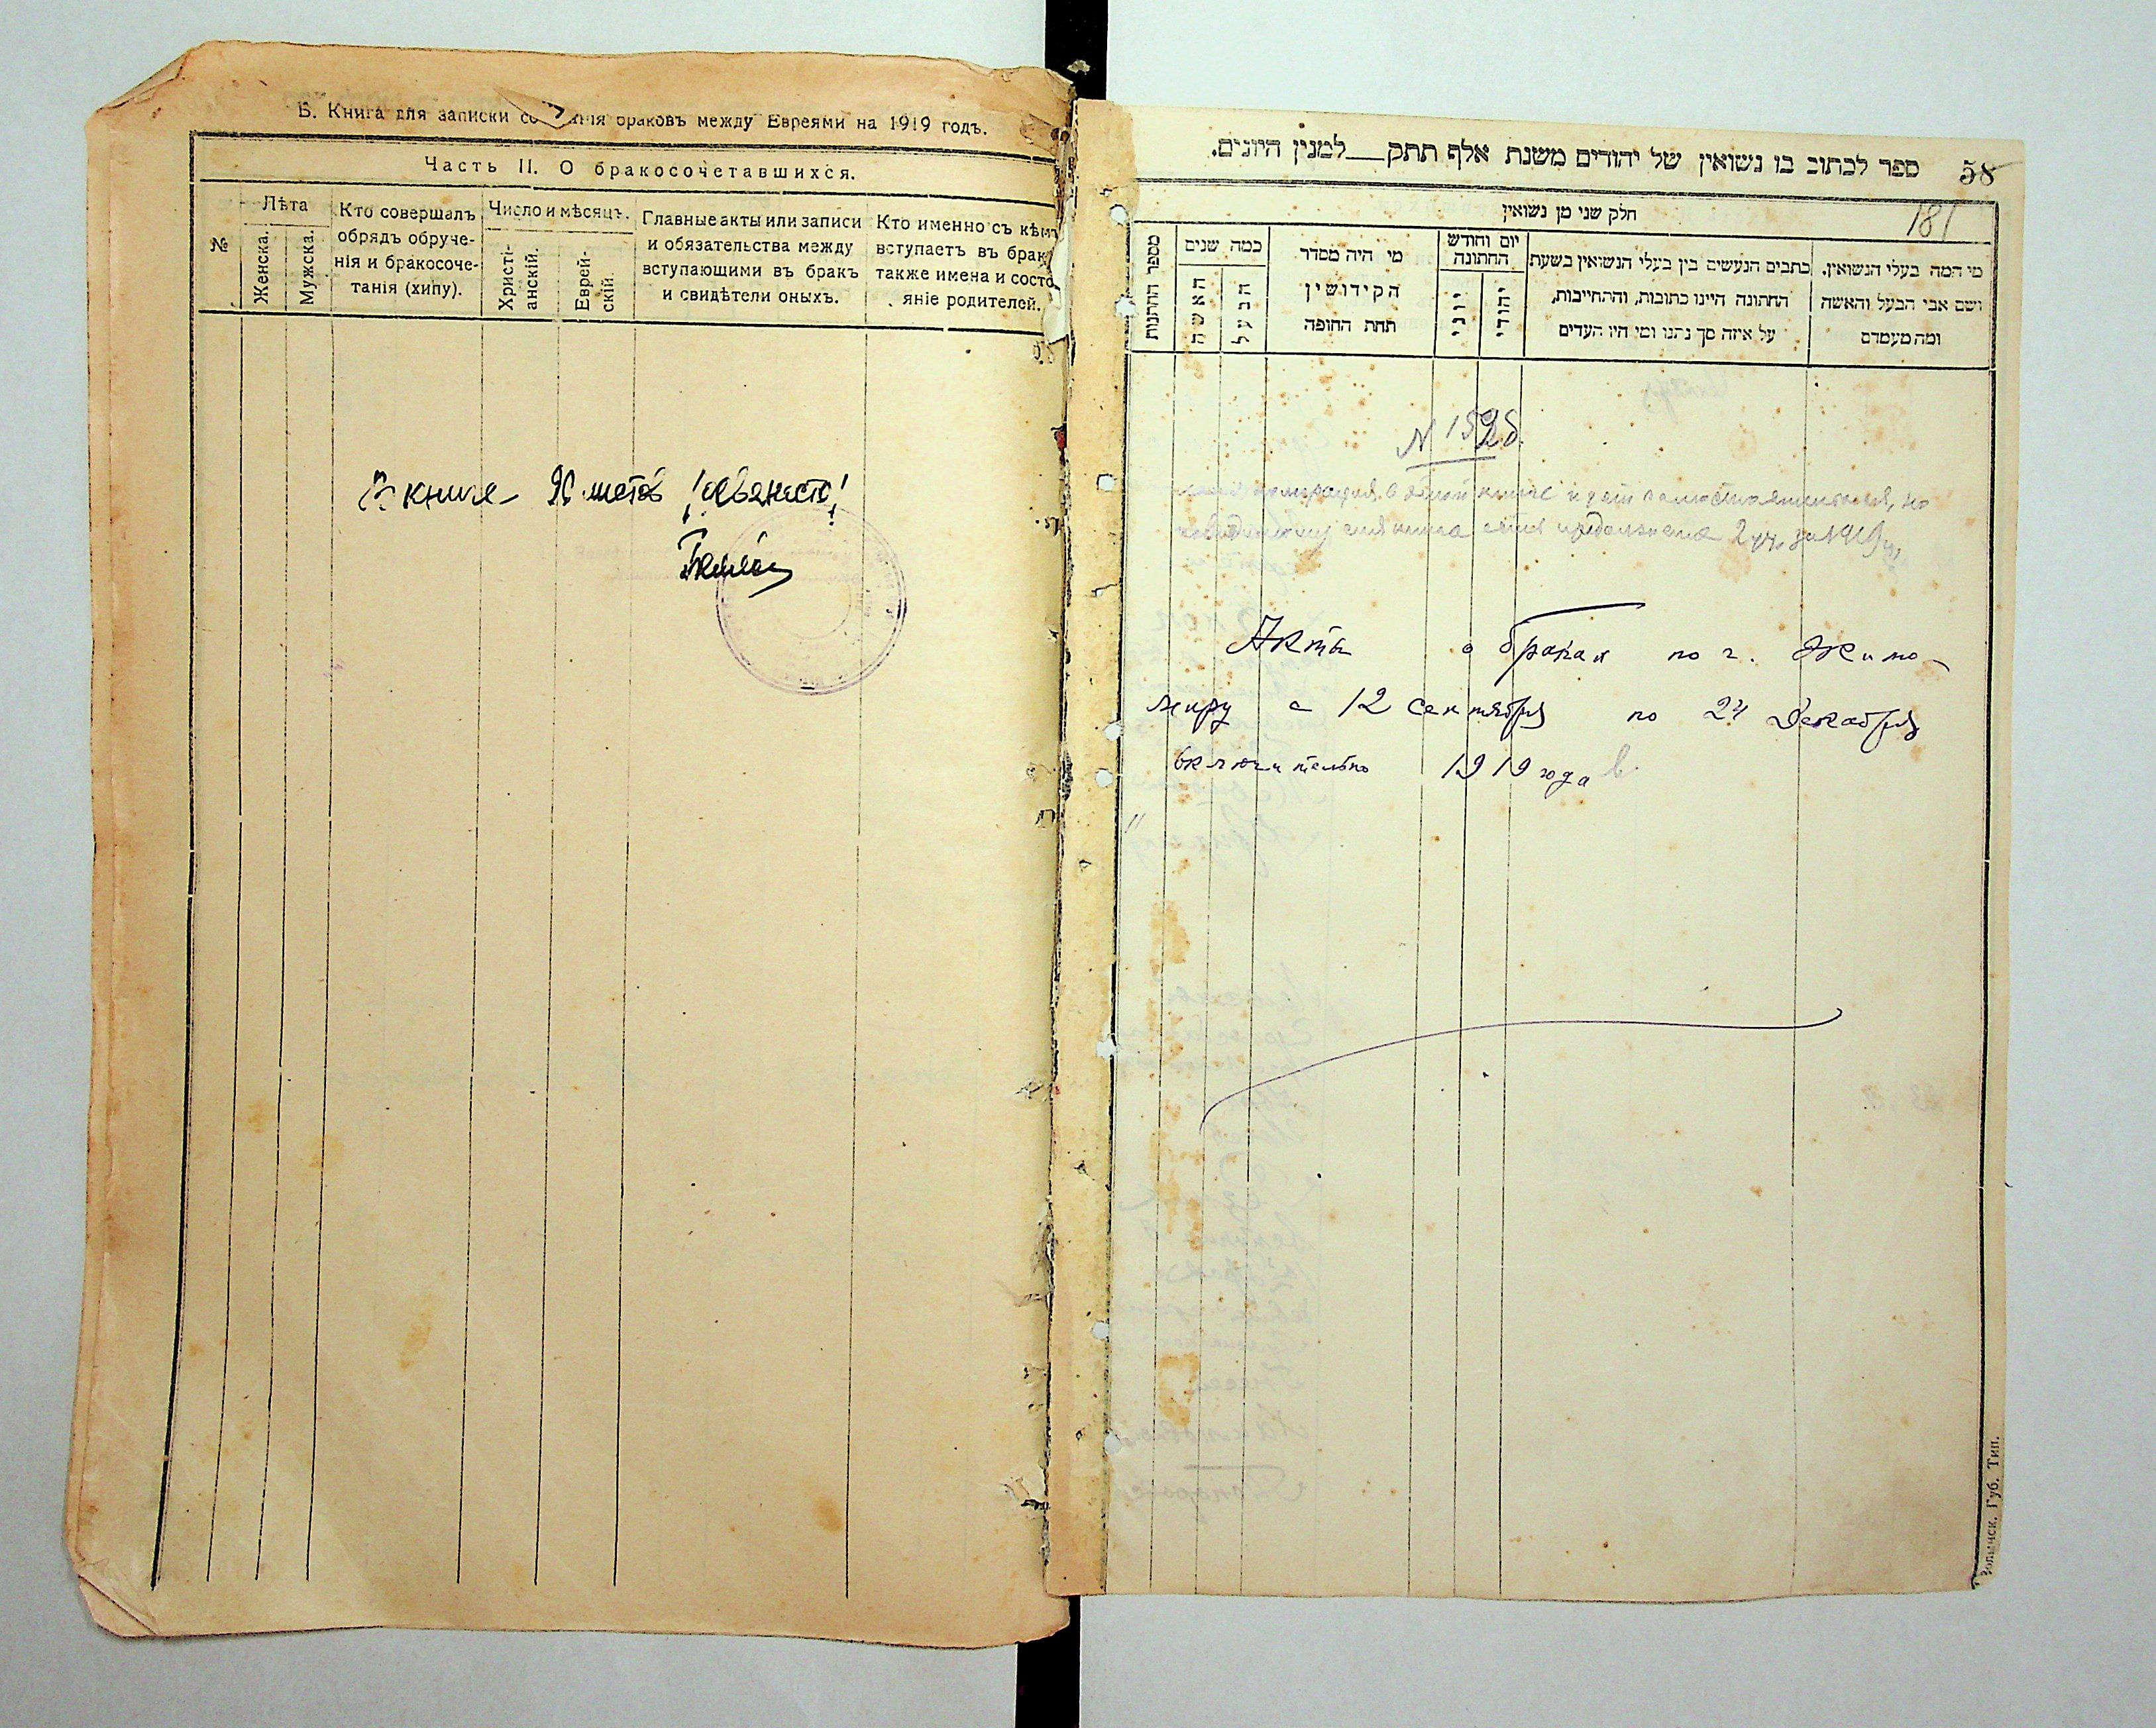 Б. Книга для записки со нія браковъ между Евреями на 1919 годъ.
Часть II. О бракосочетавшихся.
№
Лѣта
Женска.
Мужска.
Кто совершалъ
обрядъ обруче-
нія и бракосоче-
танія (хипу).
Число и мѣсяцъ.
Христі-
анскій.
Еврей-
скій.
Главные акты или записи
и обязательства между
вступающими въ бракъ
и свидѣтели оныхъ.
Кто именно съ кѣмъ
вступаетъ въ бракъ
также имена и состо-
яніе родителей.
книге
58
ספר לכתוב בו נשואין של יהודים משנת אלף תתק למנין היונים.
181
חלק שני מן נשואין
מספר החתונות
כמה שנים
האשה
הבעל
מי היה מסדר
הקידושין
תחת החופה
יום וחודש
החתונה
יוני
יהודי
כתבים הנעשים בין בעלי הנשואין בשעת
החתונה היינו כתובות, והתחייבות,
על איזה סך נתנו ומי היו העדים
מי המה בעלי הנשואין.
ושם אבי הבעל והאשה
ומה מעמדם
Акты о браках по г. Жито-
миру с 12 сентября по 24 Декабря
включительно 1919 года
Волынск. Губ. Тип.